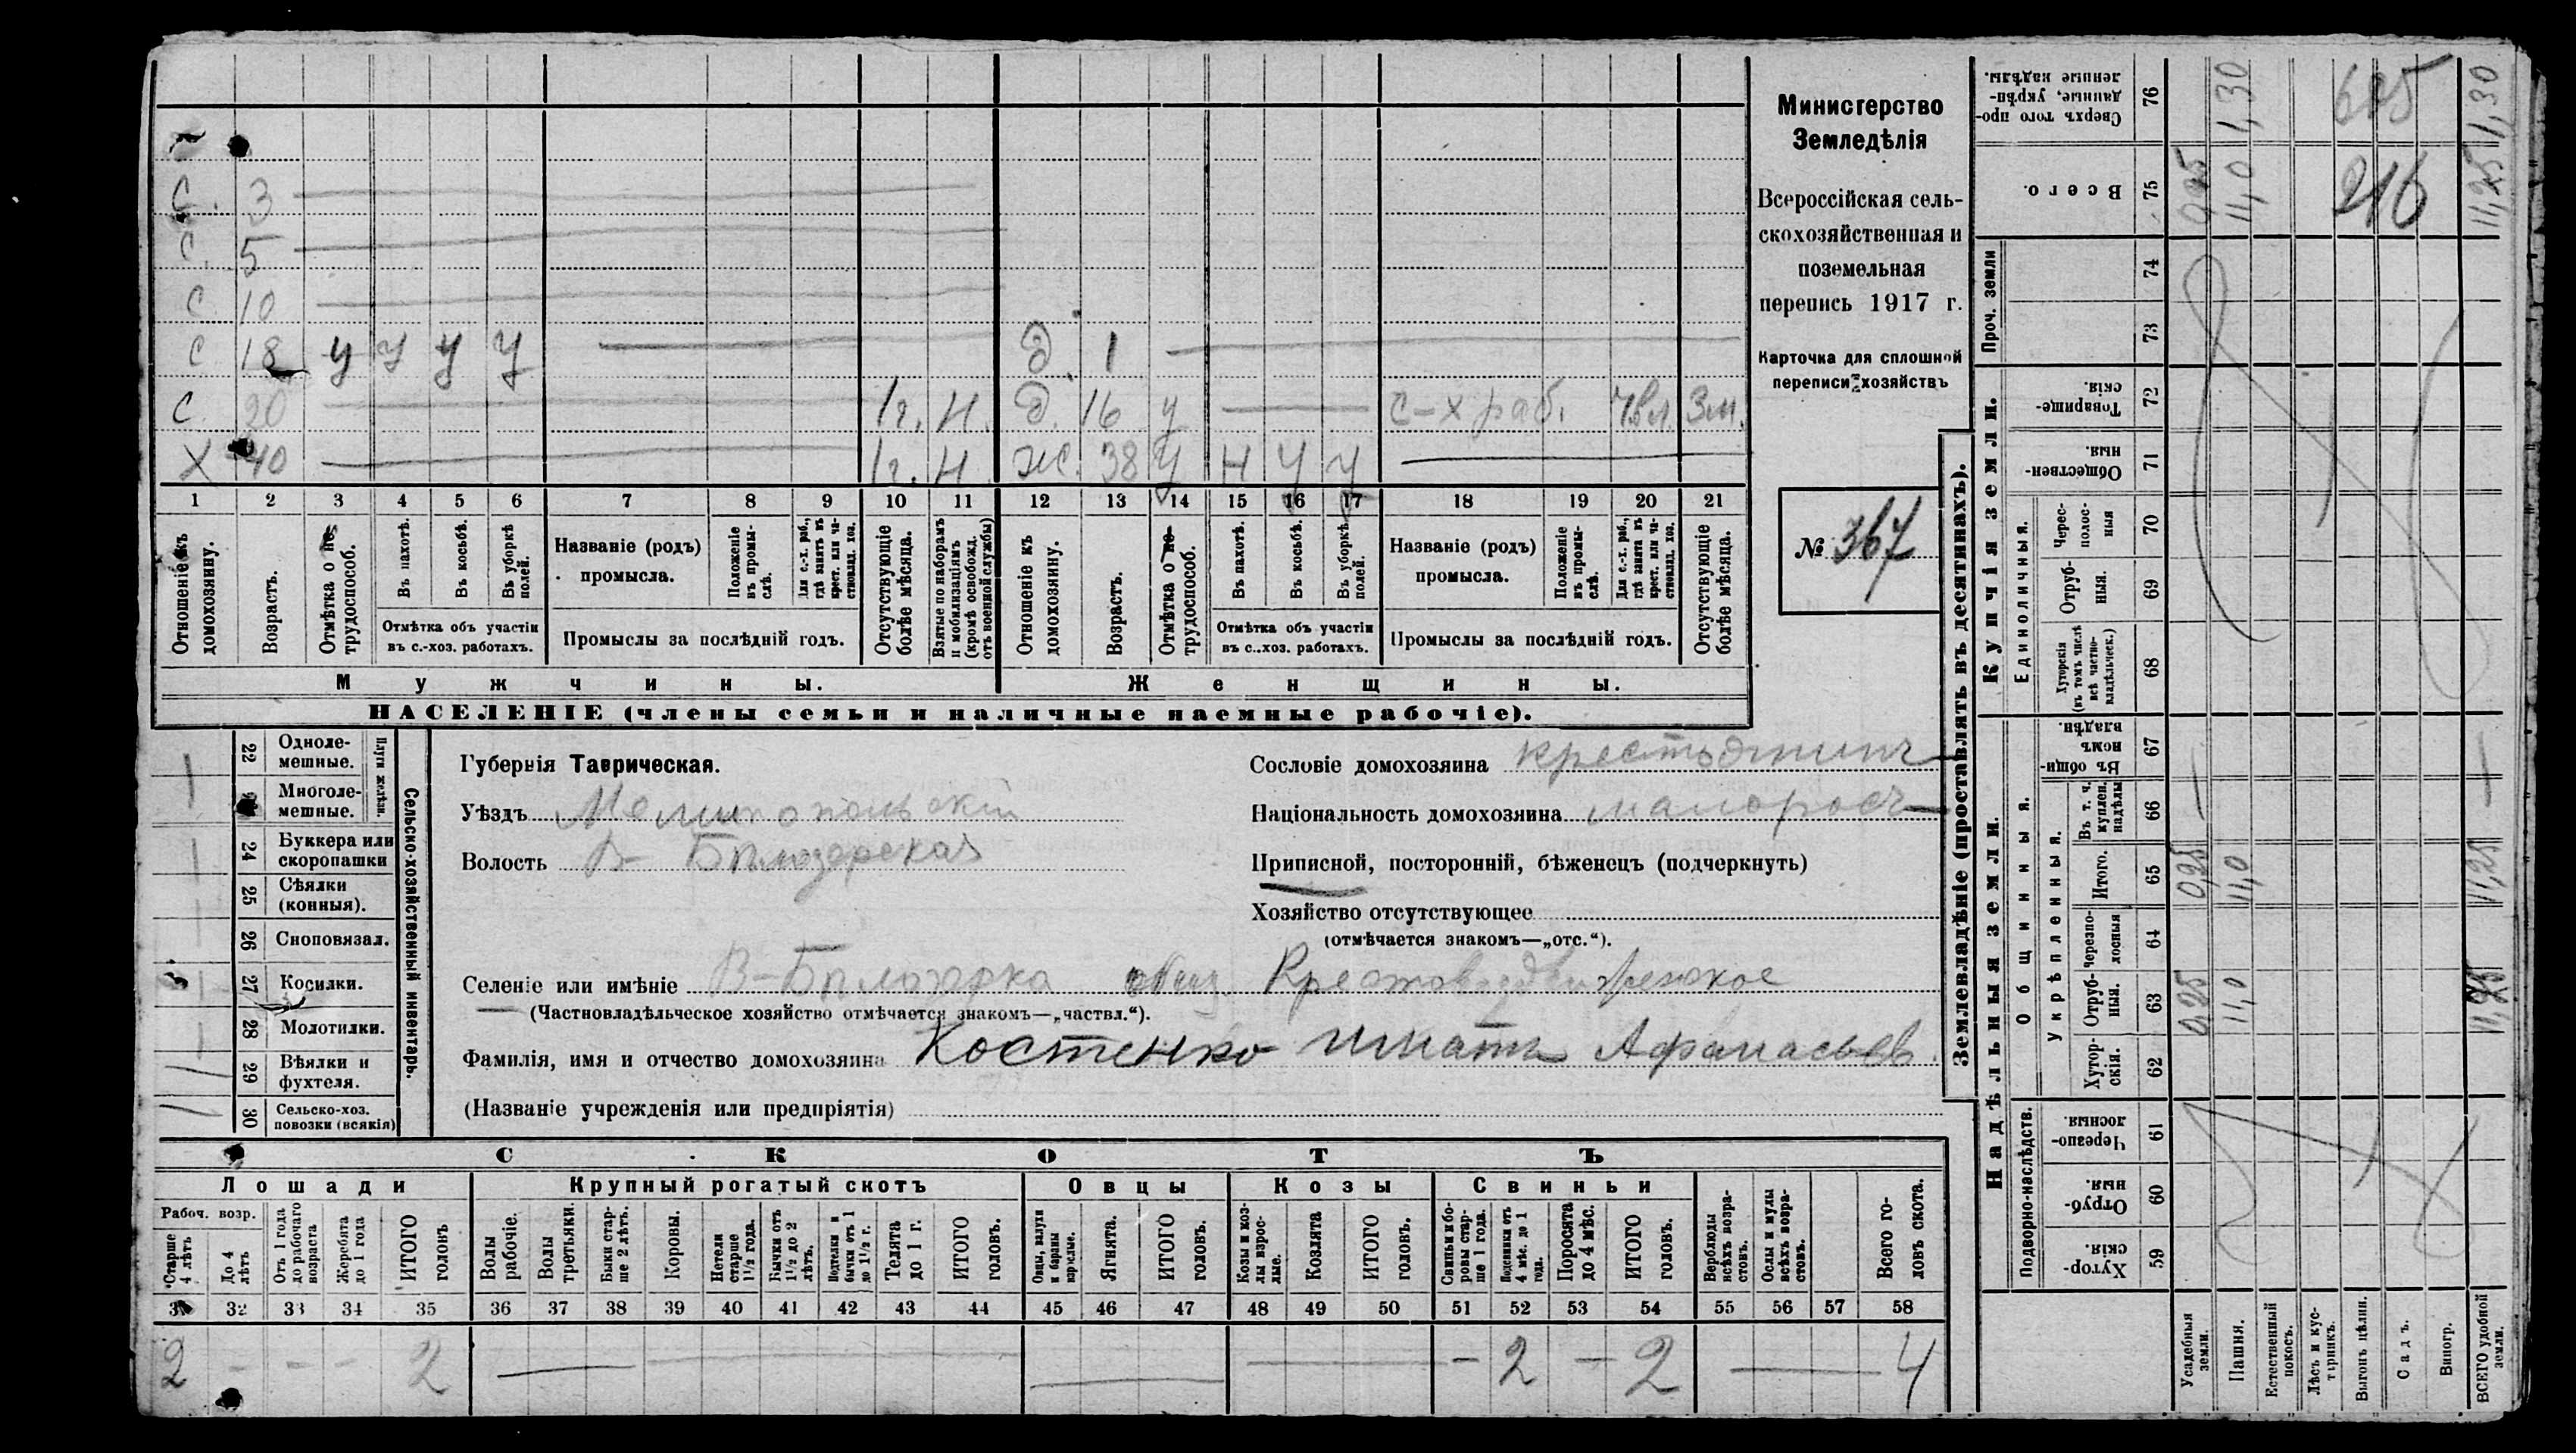 Министерство
Земледѣлія
Всероссійская сель-
скохозяйственная и
поземельная
перепись 1917 г.
Карточка для сплошной
переписи хозяйствъ
№ 367
С. 3
С. 5
С. 10
С 18 У У У У Д. 1
С 20 1г. Н. Д. 16 У С-Х раб. Чвл. 3м.
Х 40 1г. Н. Ж. 38 У Н У У
1 2 3 4 5 6 7 8 9 10 11 12 13 14 15 16 17 18 19 20 21
Отношеніе къ домохозяину.
Возрастъ.
Отмѣтка о не-трудоспособ.
Въ пахотѣ.
Въ косьбѣ.
Въ уборкѣ полей.
Отмѣтка объ участіи
въ с.-хоз. работахъ.
Названіе (родъ)
промысла.
Положеніе въ промы-слѣ.
Для с.-х. раб., гдѣ занятъ въ крест. или ча-стновлад. хоз.
Промыслы за послѣдній годъ.
Отсутствующіе болѣе мѣсяца.
Взятые по наборамъ и мобилизаціямъ (кромѣ освобожд. отъ военной службы)
Отношеніе къ домохозяину.
Возрастъ.
Отмѣтка о не-трудоспособ.
Въ пахотѣ.
Въ косьбѣ.
Въ уборкѣ полей.
Отмѣтка объ участіи
въ с.-хоз. работахъ.
Названіе (родъ)
промысла.
Положеніе въ промы-слѣ.
Для с.-х. раб., гдѣ занята въ крест. или ча-стновлад. хоз.
Промыслы за послѣдній годъ.
Отсутствующіе болѣе мѣсяца.
Мужчины. Женщины.
НАСЕЛЕНІЕ (члены семьи и наличные наемные рабочіе).
22 Одноле-
мешные.
Многоле-
мешные.
Плуги желѣзн.
24 Буккера или
скоропашки
25 Сѣялки
(конныя).
26 Сноповязал.
27 Косилки.
28 Молотилки.
29 Вѣялки и
фухтеля.
30 Сельско-хоз.
повозки (всякія)
Сельско-хозяйственный инвентарь.
Губернія Таврическая.
Уѣздъ Мелитопольскій
Волость В-Бѣлозерская
Сословіе домохозяина крестьянинъ
Національность домохозяина малороссъ
Приписной, посторонній, бѣженецъ (подчеркнуть)
Хозяйство отсутствующее
(отмѣчается знакомъ—„отс.“).
Селеніе или имѣніе В-Бѣлозерка общ. Крестовоздвиженское
(Частновладѣльческое хозяйство отмѣчается знакомъ—„частвл.“).
Фамилія, имя и отчество домохозяина Костенко Игнатъ Афанасьев.
(Названіе учрежденія или предпріятія)
СКОТЪ
Лошади Крупный рогатый скотъ Овцы Козы Свиньи
Рабоч. возр.
Старше 4 лѣтъ
До 4 лѣтъ
Отъ 1 года до рабочаго возраста
Жеребята до 1 года
ИТОГО головъ
Волы рабочіе.
Волы третьяки.
Быки стар-ше 2 лѣтъ.
Коровы.
Нетели старше 1½ года.
Бычки отъ 1½ до 2 лѣтъ.
Подтелки и бычки отъ 1 до 1½ г.
Телята до 1 г.
ИТОГО головъ.
Овцы, валухи и бараны взрослые.
Ягнята.
ИТОГО головъ.
Козы и коз-лы взрос-лые.
Козлята
ИТОГО головъ.
Свиньи и бо-ровы стар-ше 1 года.
Подсвинки отъ 4 мѣс. до 1 года.
Поросята до 4 мѣс.
ИТОГО головъ.
Верблюды всѣхъ возра-стовъ.
Ослы и мулы всѣхъ возра-стовъ.
Всего го-ловъ скота.
32 33 34 35 36 37 38 39 40 41 42 43 44 45 46 47 48 49 50 51 52 53 54 55 56 57 58
2 — — — 2 — — — — — 2 — 2 — 4
Землевладѣніе (проставлять въ десятинахъ).
Надѣльныя земли. Купчія земли.
Подворно-наслѣдств. Общинныя. Укрѣпленныя. Единоличныя. Проч. земли
Хутор-скія. 59
Отруб-ныя. 60
Черезпо-лосныя. 61
Хутор-скія. 62
Отруб-ныя. 63
Черезпо-лосныя 64
Итого. 65
Въ т. ч. куплен. надѣлы 66
Въ общи-номъ владѣн. 67
Хуторскія (въ томъ числѣ всѣ частно-владѣльческ.) 68
Отруб-ныя. 69
Черес-полос-ныя 70
Обществен-ныя. 71
Товарище-скія. 72
73
74
Всего. 75
Сверхъ того про-данные, укрѣп-ленные надѣлы. 76
Усадебныя земли. 0,25 0,25 — 0,25
Пашня. 11,0 11,0 11,0 1,30
Естественный покосъ.
Лѣсъ и кус-тарникъ.
Выгонъ цѣлин. 216 605
Садъ.
Виногр.
ВСЕГО удобной земли. 11,25 11,25 — 11,25 1,30